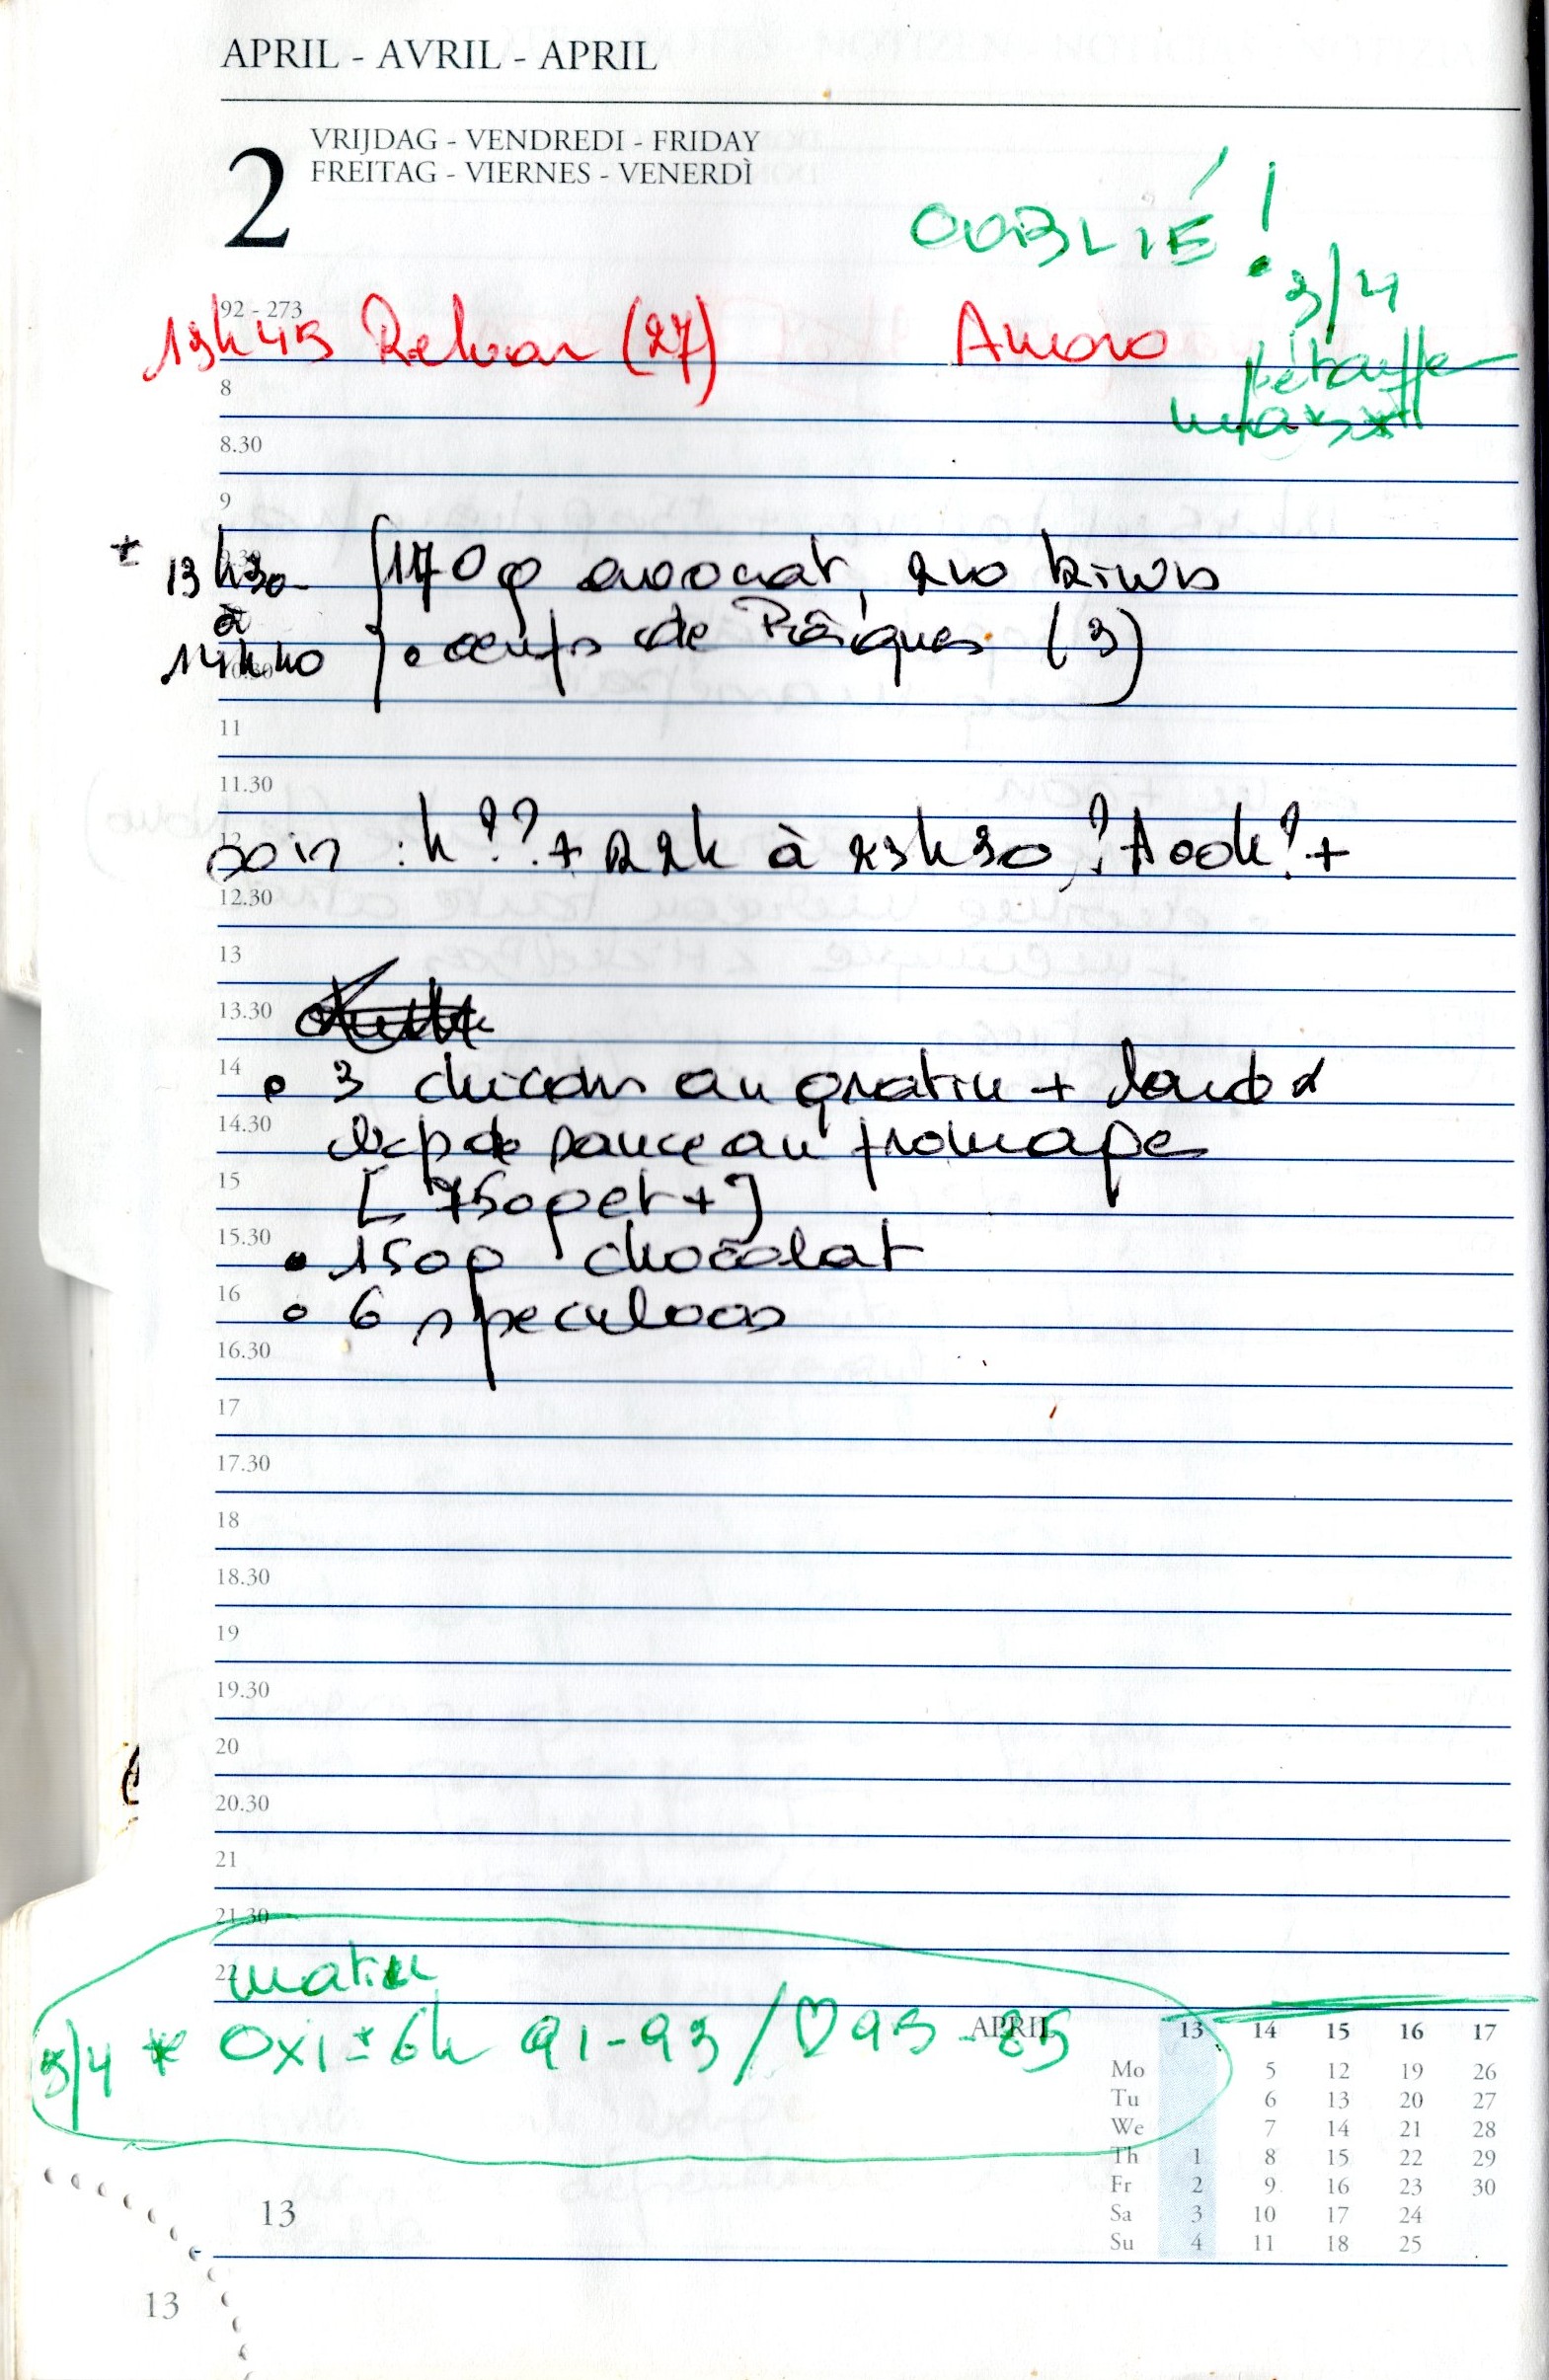 APRIL - AVRIL - APRIL
2
VRIJDAG - VENDREDI - FRIDAY
FREITAG - VIERNES - VENERDÌ
OUBLIÉ !
3/4
92 - 273
13h45 Relvar (27) Amoro
8
8.30
9
± 13h30 170g avocat, 210 kiwis
à
14h40 • oeufs de Pâques (3)
11
11.30
12
soir : h ?? + 22h à 23h30 ? + ooh ? +
12.30
13
13.30
14
• 3 chicons au gratin + lard &
14.30
de sauce au fromage
15
[750g et +]
15.30
• 150g chocolat
16
• 6 speculoos
16.30
17
17.30
18
18.30
19
19.30
20
20.30
21
21.30
22
matin
3/4 * Oxi ± 6h 91-93 / ♡ 95 - 85
APRIL 13 14 15 16 17
Mo 5 12 19 26
Tu 6 13 20 27
We 7 14 21 28
Th 1 8 15 22 29
Fr 2 9 16 23 30
Sa 3 10 17 24
Su 4 11 18 25
13
13